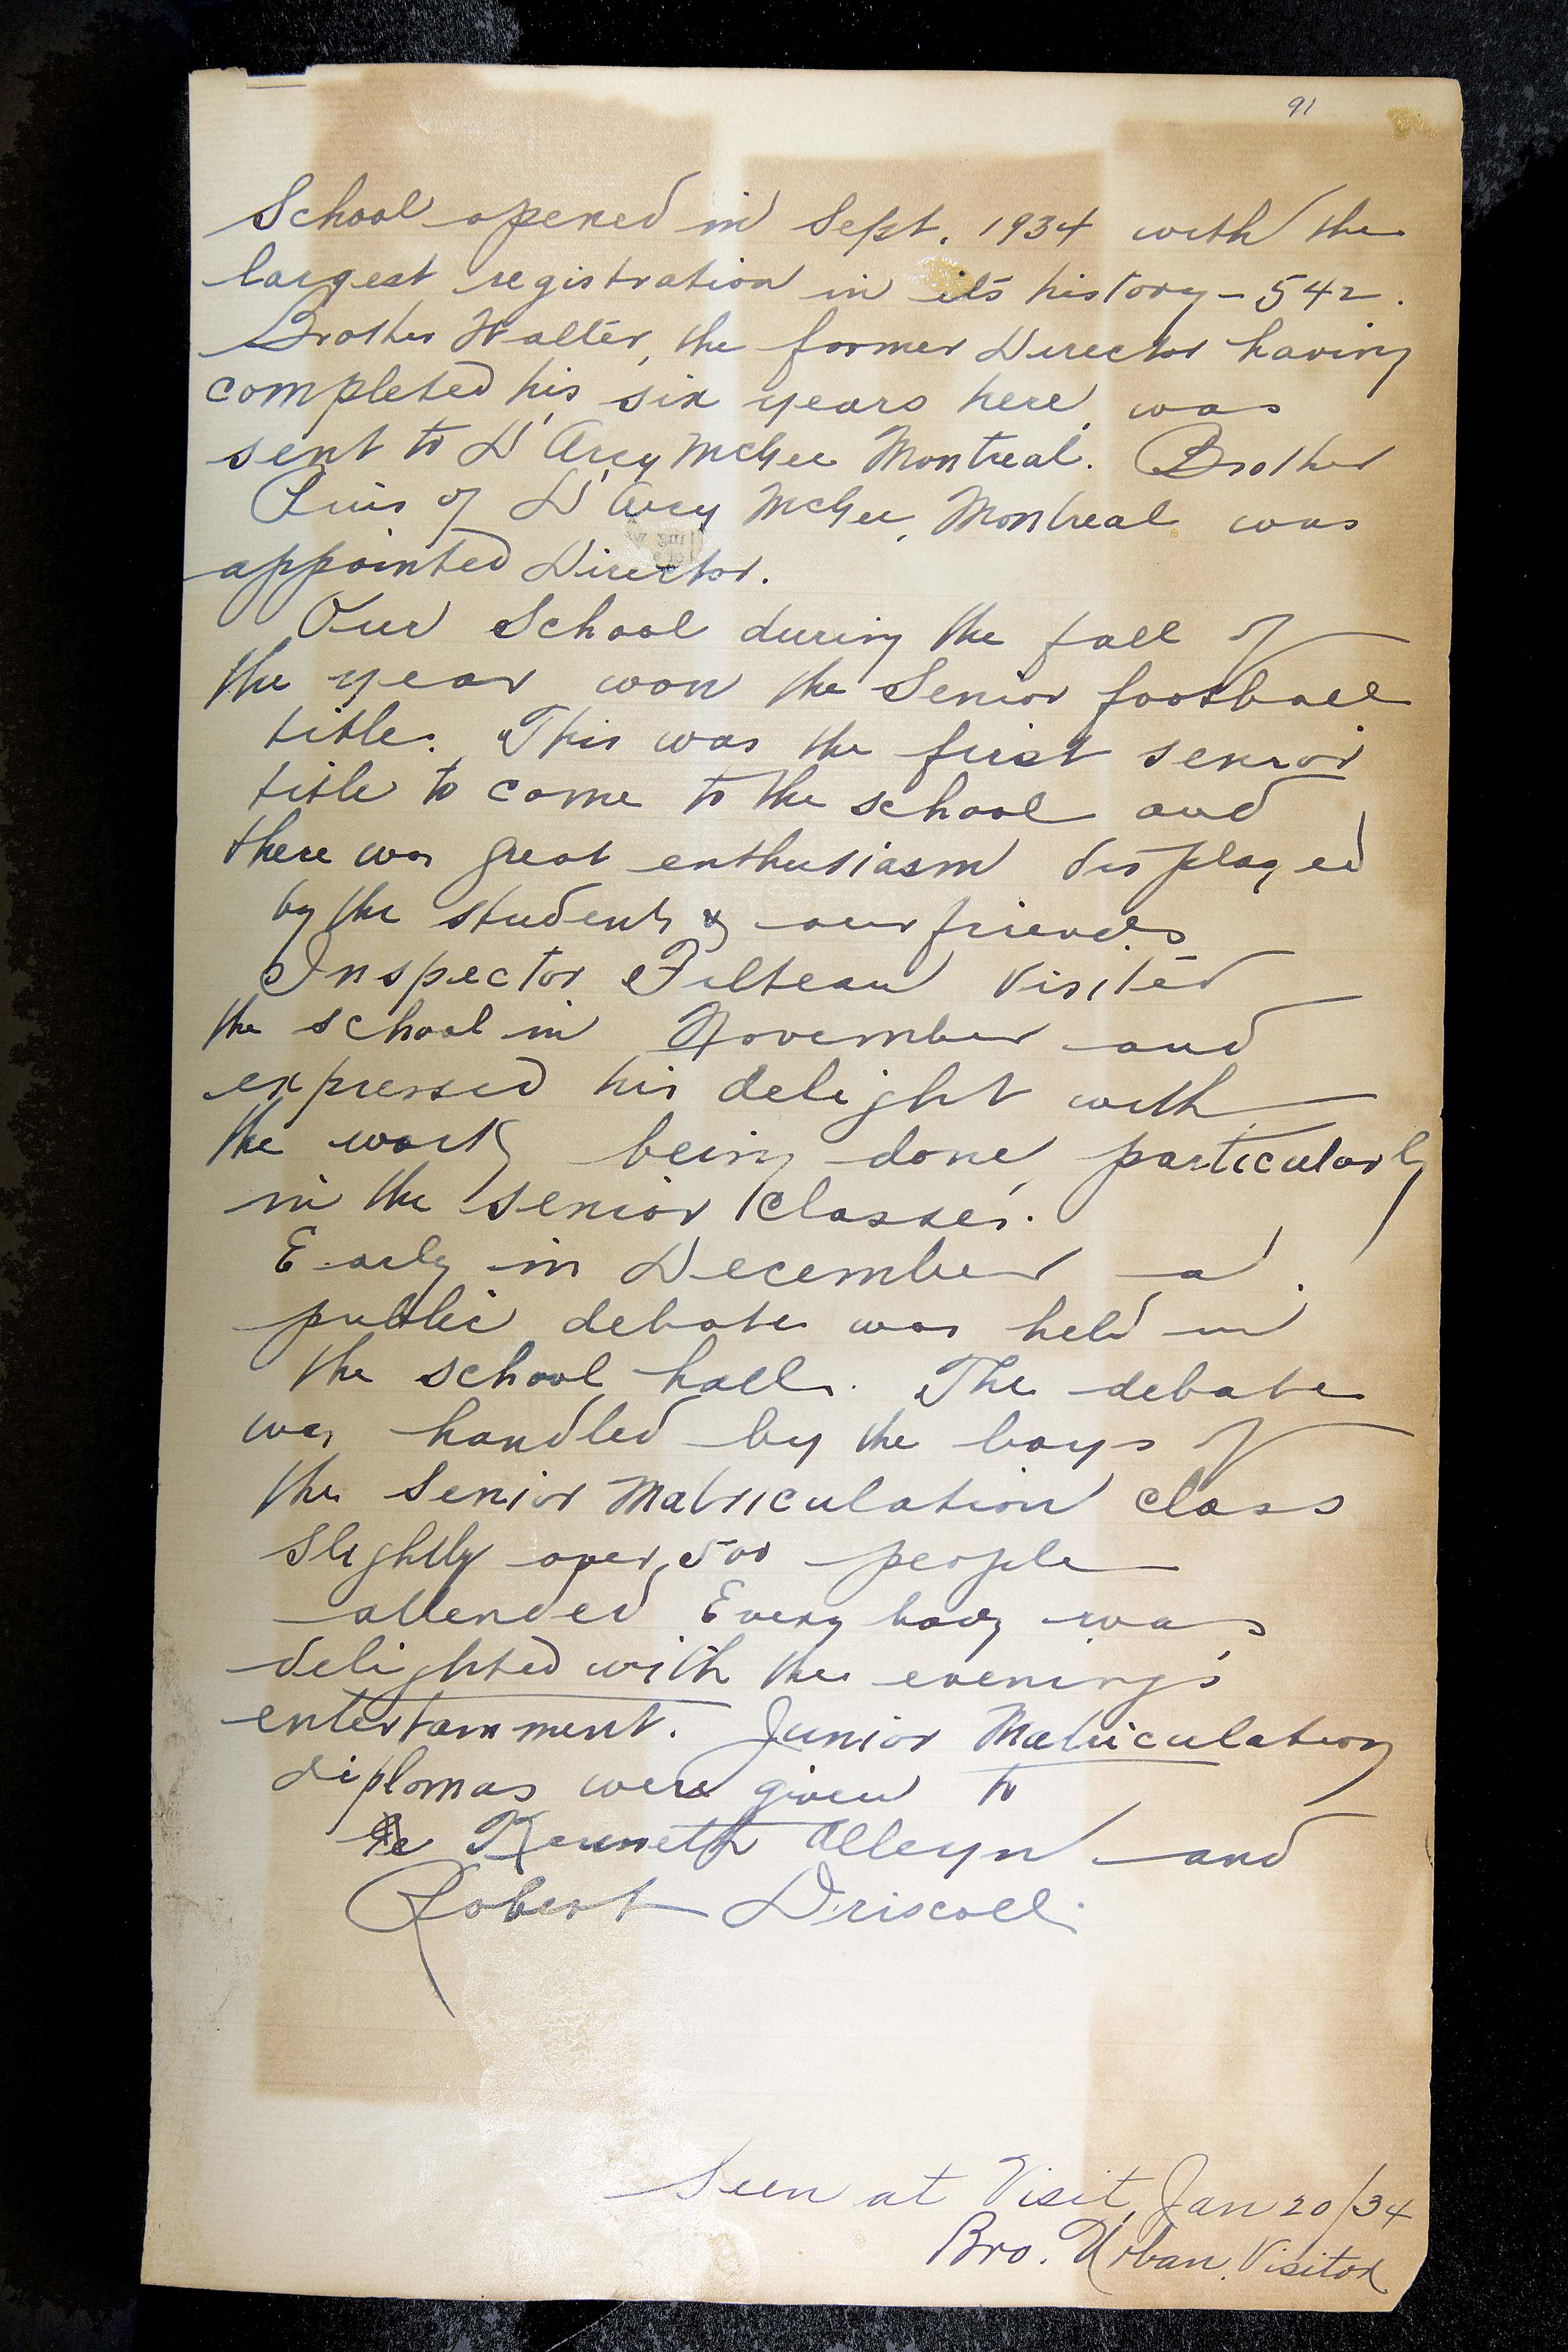 91
School opened in Sept. 1934 with the
largest registration in its history - 542.
Brother Walter, the former Director having
completed his six years here, was
sent to D'Arcy McGee Montreal. Brother
Pius of D'Arcy McGee, Montreal was
appointed Director.
Our School during the fall of
the year won the Senior football
title. This was the first senior
title to come to the school and
there was great enthusiasm displayed
by the students & our friends
Inspector Filteau visited
the school in November and
expressed his delight with
the work being done, particularly
in the senior classes.
Early in December a
public debate was held in
the school hall. The debate
was handled by the boys of
the Senior Matriculation class
slightly over 500 people
attended Every body was
delighted with the evening's
entertainment. Junior Matriculation
diplomas were given to
Kenneth Alleyn and
Robert Driscoll.
Seen at Visit, Jan 20/34
Bro. Urban, Visitor